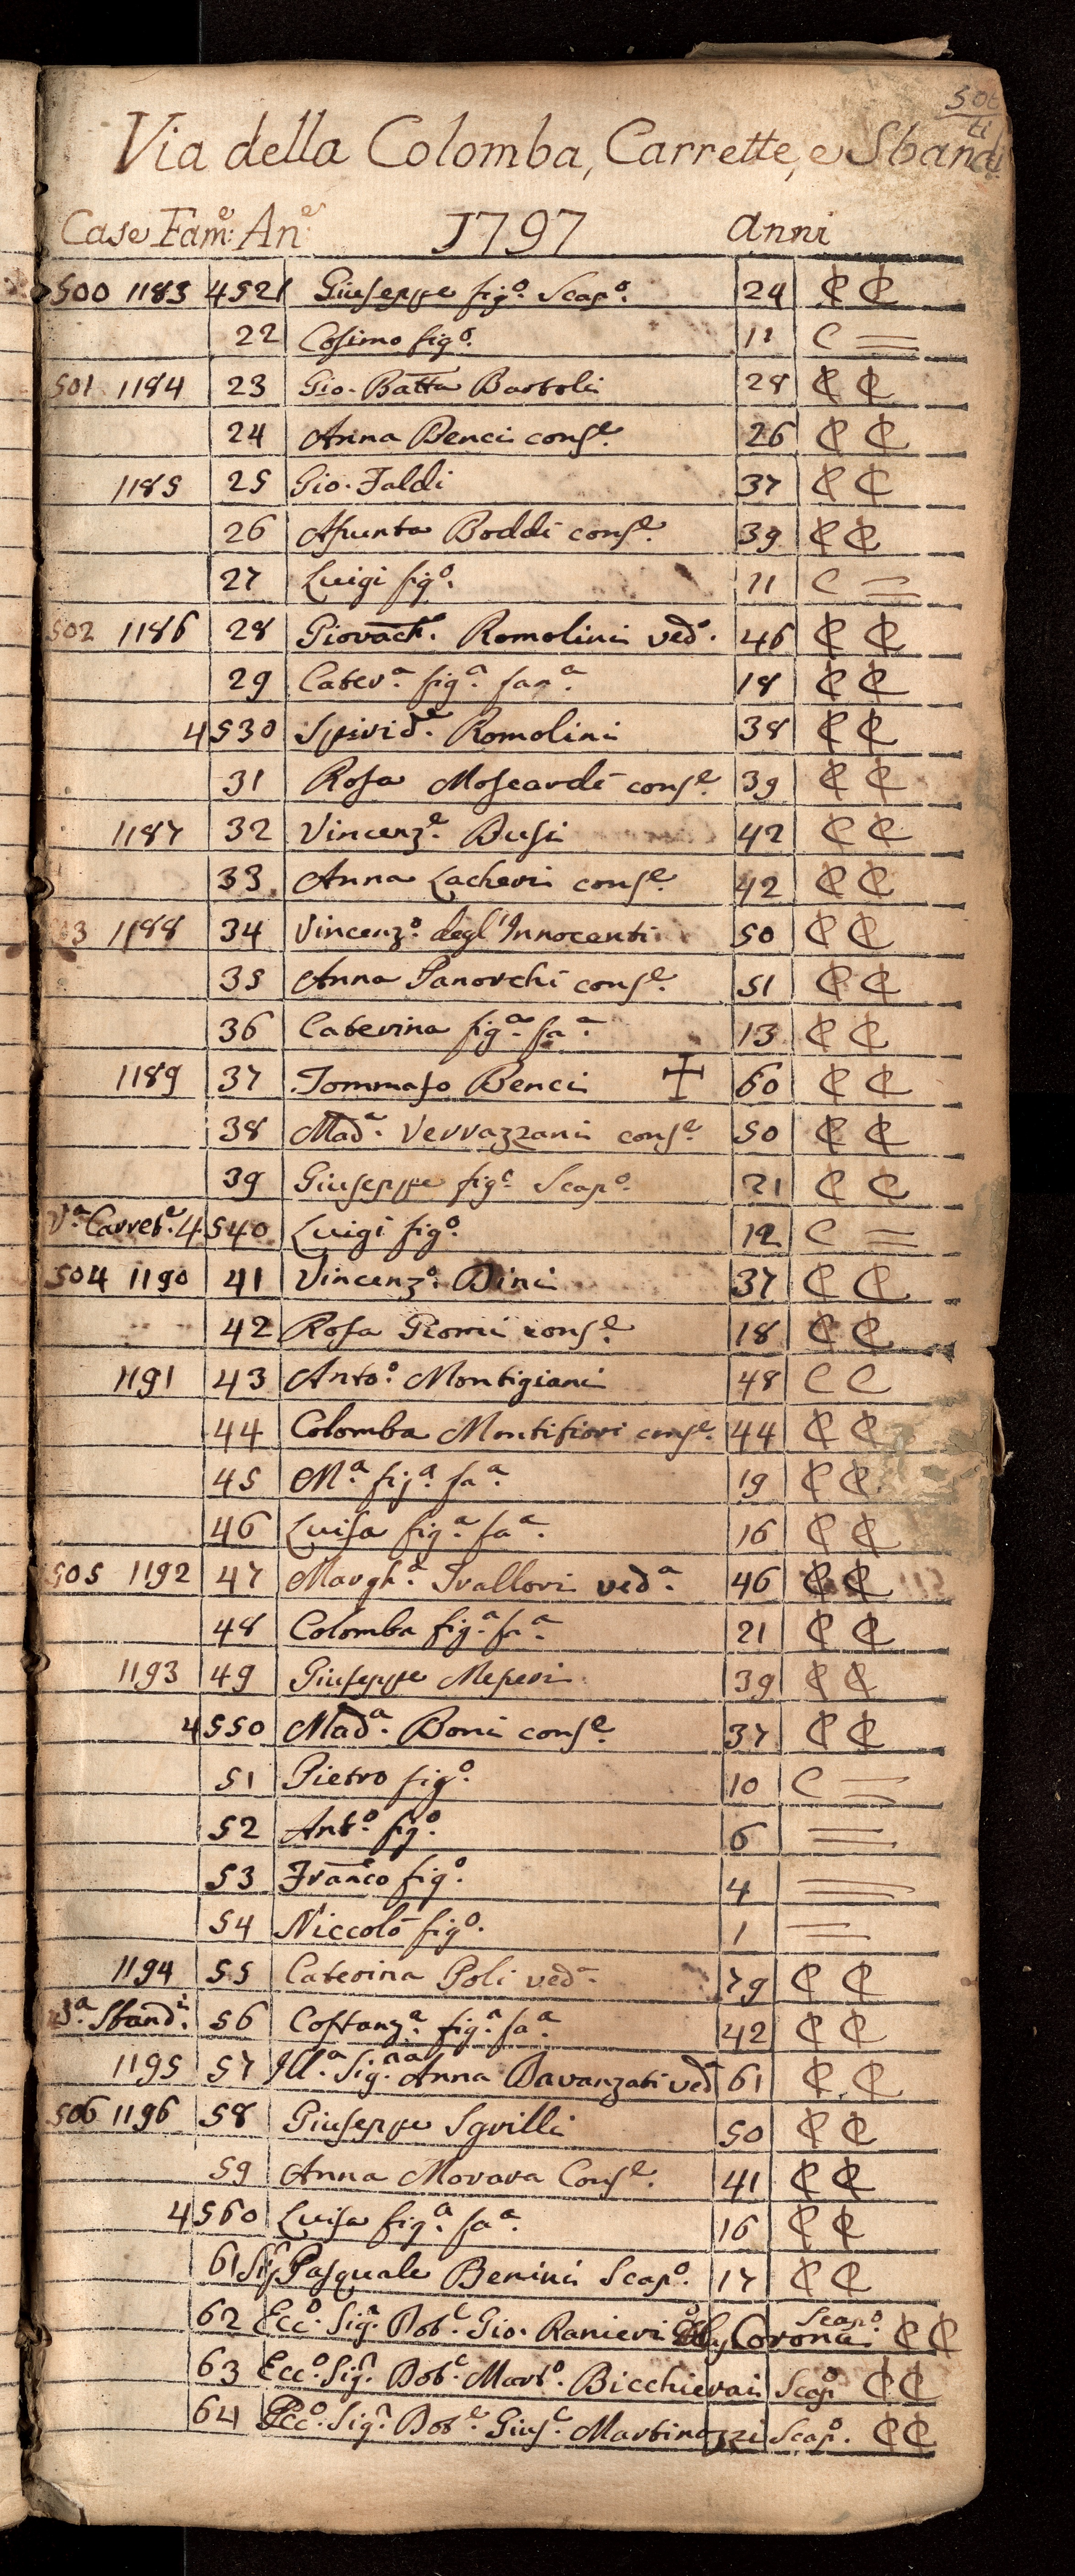 Via della Colomba, Carrette, e Sbandi
Case Fam:e An:e 1797 anni
500 1183 4521 Giuseppe fig.o Scap.o 24 C C
22 Cosimo fig.o 11 C =
501 1184 23 Gio. Batta Bartoli 28 C C
24 Anna Benci cons.e 26 C C
1185 25 Gio. Faldi 37 C C
26 Assunta Boddi cons.e 39 C C
27 Luigi fig.o 11 C =
502 1186 28 Giovacch. Romolini ved. 46 C C
29 Cater.a fig.a fan.a 18 C C
4530 Spirid.e Romolini 38 C C
31 Rosa Moscardi cons.e 39 C C
1187 32 Vincenz.o Busi 42 C C
33 Anna Lacheri cons.e 42 C C
503 1188 34 Vincenz.o degl'Innocenti 50 C C
35 Anna Panorchi cons.e 51 C C
36 Caterina fig.a fa.a 13 C C
1189 37 Tommaso Benci ✝ 60 C C
38 Mad.a Verrazzani cons.e 50 C C
39 Giuseppe fig.o Scap.o 21 C C
V.a Carret.e 4540 Luigi fig.o 12 C =
504 1190 41 Vincenz.o Dini 37 C C
42 Rosa Giomi cons.e 18 C C
1191 43 Anto.o Montigiani 48 C C
44 Colomba Montifiori cons.e 44 C C
45 M.a fig.a fa.a 19 C C
46 Luisa fig.a fa.a 16 C C
505 1192 47 Margh.a Trallori ved.a 46 C C
48 Colomba fig.a fa.a 21 C C
1193 49 Giuseppe Messeri 39 C C
4550 Mad.a Boni cons.e 37 C C
51 Pietro fig.o 10 C =
52 Ant.o fig.o 6 =
53 Franco fig.o 4 =
54 Niccolò fig.o 1 =
1194 55 Caterina Poli ved.a 79 C C
V.a Sband.i 56 Costanz.a fig.a fa.a 42 C C
1195 57 Ill.a Sig.na Anna Davanzati ved.a 61 C C
506 1196 58 Giuseppe Sgrilli 50 C C
59 Anna Morara Cons.e 41 C C
4560 Luisa fig.a fa.a 16 C C
61 Sig.r Pasquale Benini Scap.o 17 C C
62 Ecc.o Sig.r Dot.e Gio. Ranieri Corona Scap.o C C
63 Ecc.o Sig.r Dot.e Mart.o Bicchierai Scap.o C C
64 Ecc.o Sig.r Dot.e Gius.e Martinozzi Scap.o C C